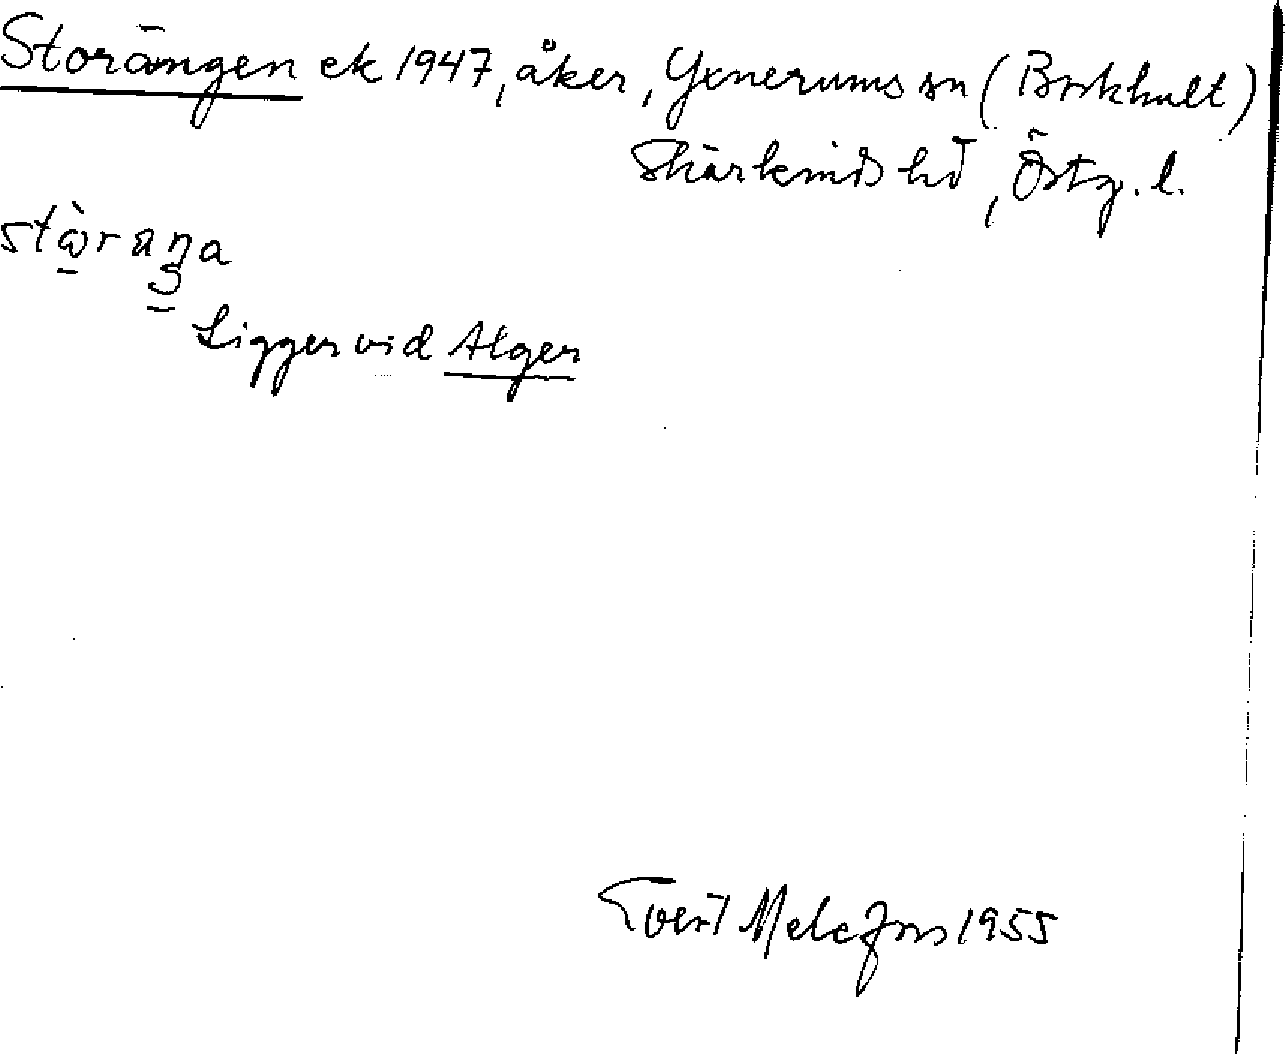 Storängen ek 1947, åker, Yxnerums sn (Borkhult)
Skärkinds hd, Östg. l.
Ligger vid Alger
Evert Melefors 1955